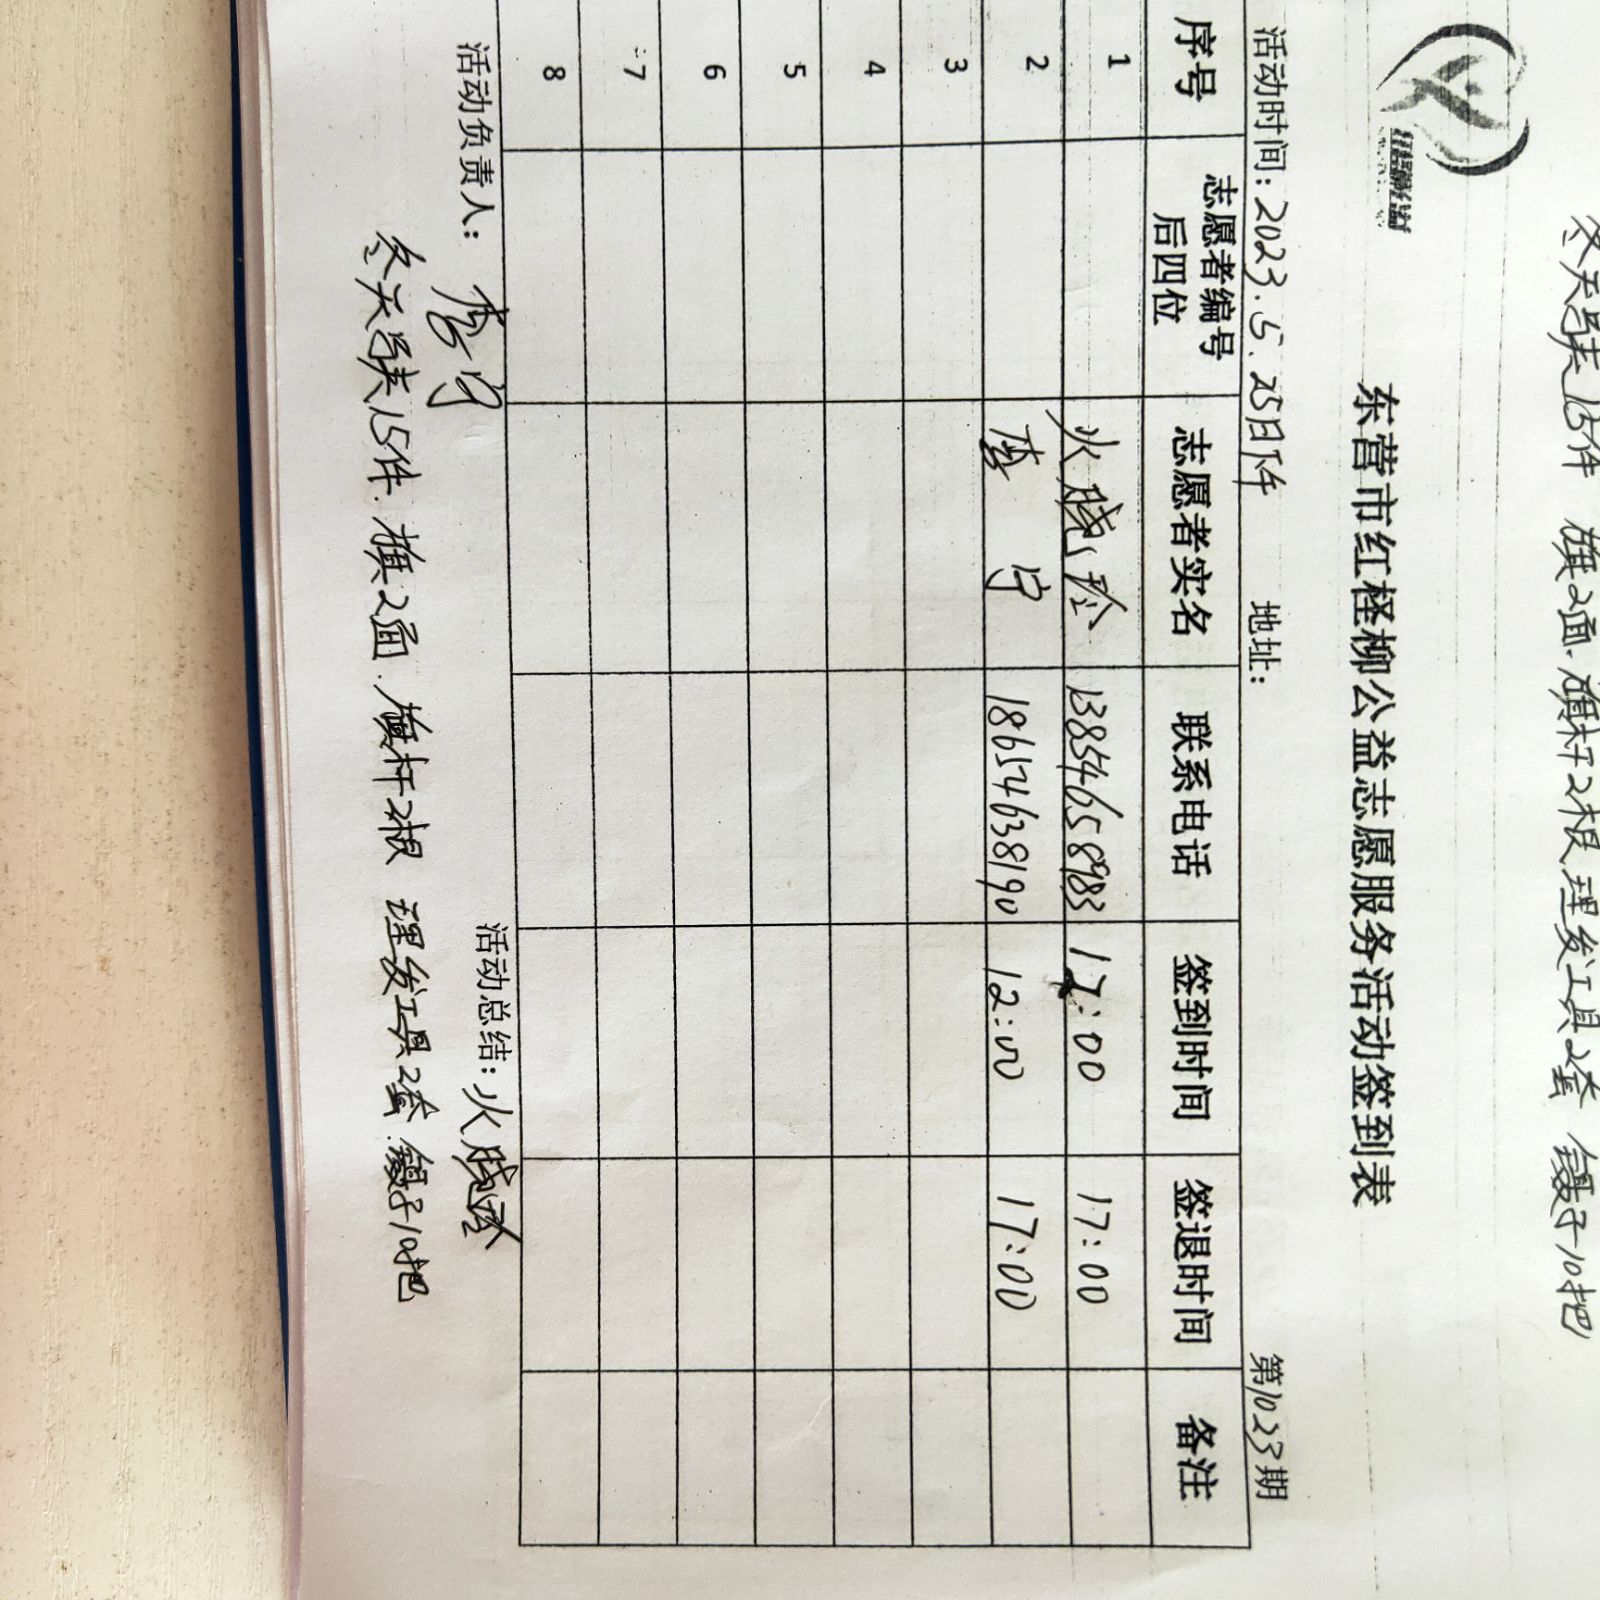 冬天马夹15件 旗2面.旗杆2根 理发工具2套 镊子10把
红柽柳公益
东营市红柽柳公益志愿服务活动签到表
活动时间：2023.5.25日下午 地址： 第1023期
序号 志愿者编号后四位 志愿者实名 联系电话 签到时间 签退时间 备注
1 火晓玲 13854658983 12:00 17:00
2 李宁 18654638190 12:00 17:00
3
4
5
6
7
8
活动负责人：李宁 活动总结：火晓玲
冬天马夹15件.旗2面.旗杆2根 理发工具2套.镊子10把